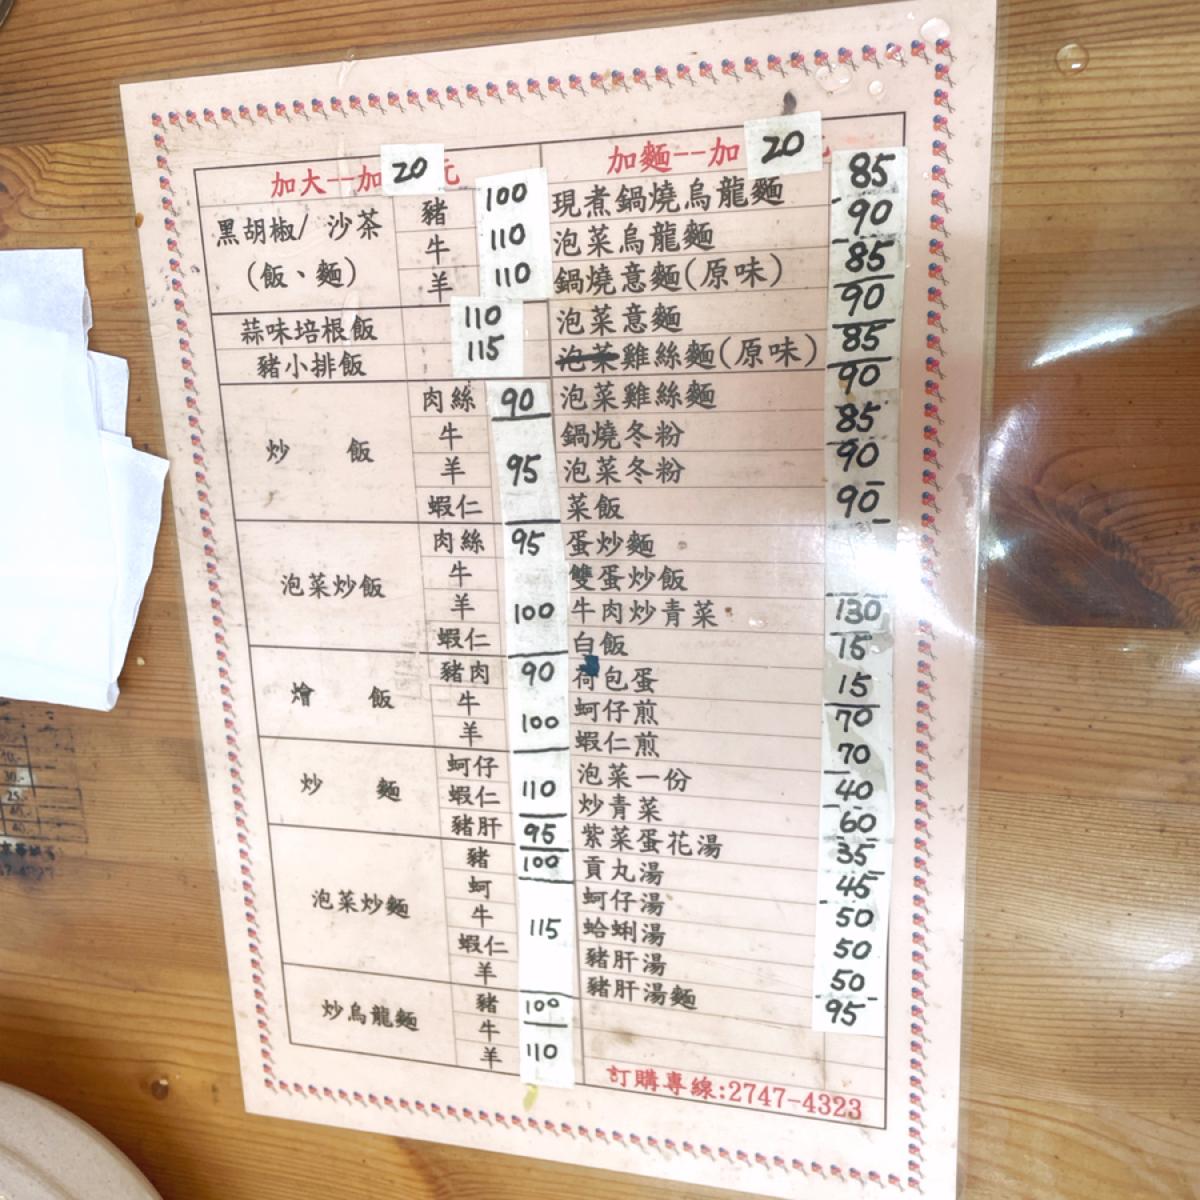 加大--加 20 元
黑胡椒/ 沙茶
(飯、麵)
豬 100
牛 110
羊 110
蒜味培根飯 110
豬小排飯 115
炒 飯
肉絲 90
牛
羊 95
蝦仁
泡菜炒飯
肉絲 95
牛
羊 100
蝦仁
燴 飯
豬肉 90
牛
羊 100
炒 麵
蚵仔
蝦仁 110
豬肝 95
泡菜炒麵
豬 100
蚵
牛 115
蝦仁
羊
炒烏龍麵
豬 100
牛
羊 110
加麵--加 20 元
現煮鍋燒烏龍麵 85
泡菜烏龍麵 90
鍋燒意麵(原味) 85
泡菜意麵 90
泡菜雞絲麵(原味) 85
泡菜雞絲麵 90
鍋燒冬粉 85
泡菜冬粉 90
菜飯 90
蛋炒麵
雙蛋炒飯
牛肉炒青菜 130
白飯 15
荷包蛋 15
蚵仔煎 70
蝦仁煎 70
泡菜一份 40
炒青菜 60
紫菜蛋花湯 35
貢丸湯 45
蚵仔湯 50
蛤蜊湯 50
豬肝湯 50
豬肝湯麵 95
訂購專線:2747-4323